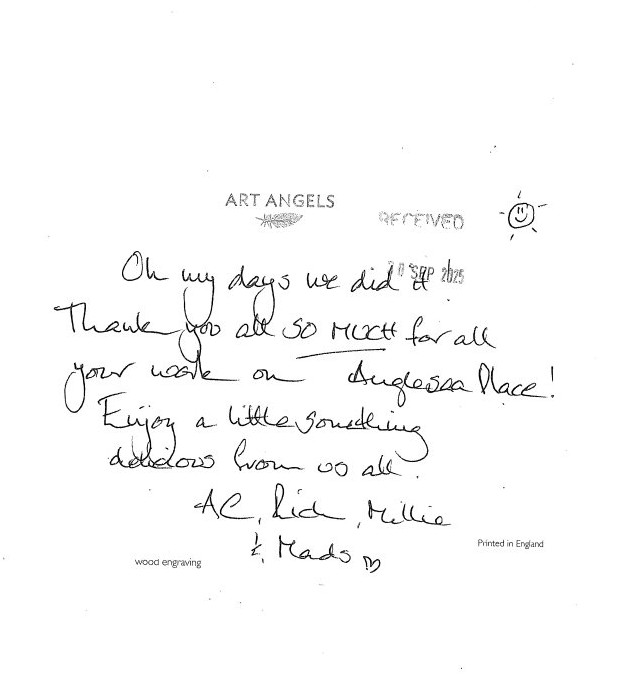 ART ANGELS
RECEIVED
SEP 2025
Oh my days we did it!
Thank you all SO MUCH for all
your work on Anglesea Place!
Enjoy a little something
delicious from us all.
AC, Rich, Millie
& Mads
Printed in England
wood engraving